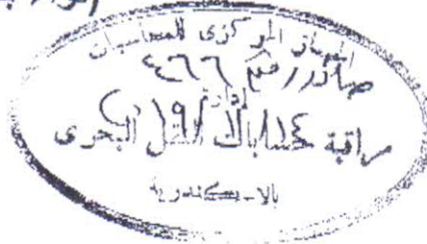 الجهاز المركزى للمحاسبات
صادر رقم ٤٦٦
إدارة
مراقبة حسابات النقل البحرى
بالاسكندرية